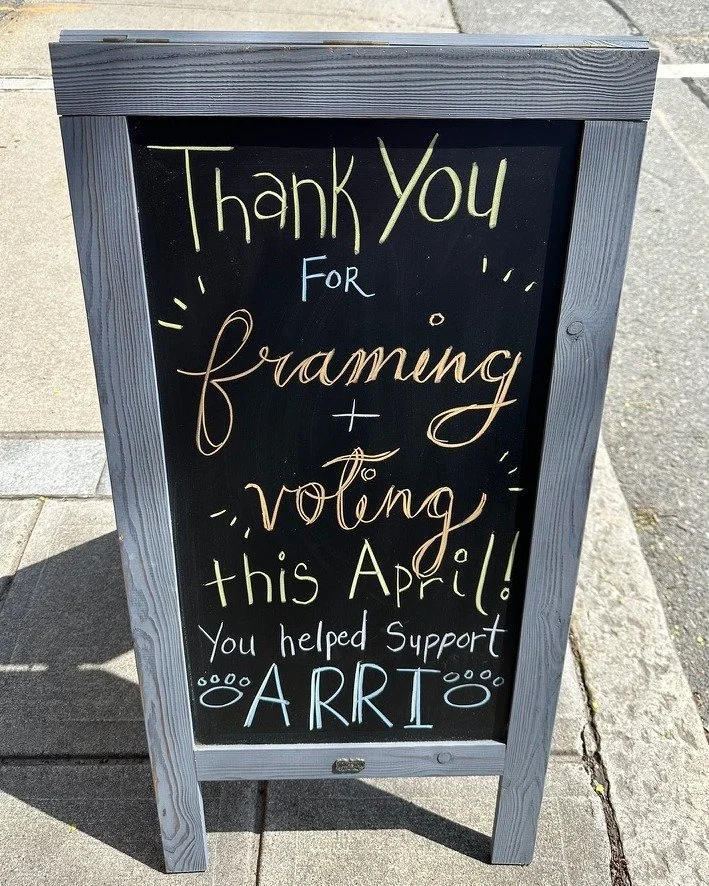 Thank You
FOR
framing
+
voting
this April!
You helped Support
ARRI